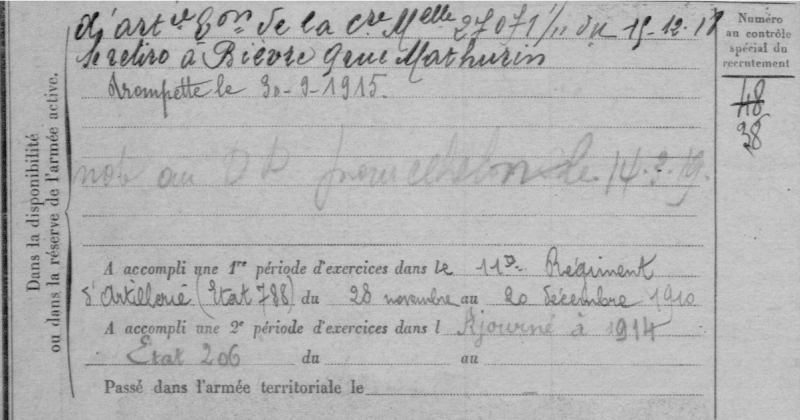 d'artie Eon de la cre Melle 27071/11 du 15-12-18
Se retire à Bièvre Grue Mathurin
Trompette le 30-9-1915.
au 14.3.19.
A accompli une 1re période d'exercices dans le 11e Régiment
d'Artillerie (Etat 788) du 28 novembre au 20 décembre 1910
A accompli une 2e période d'exercices dans l Ajourné à 1914
Etat 206 du au
Passé dans l'armée territoriale le
Dans la disponibilité
ou dans la réserve de l'armée active.
Numéro
au contrôle
spécial du
recrutement
48
38